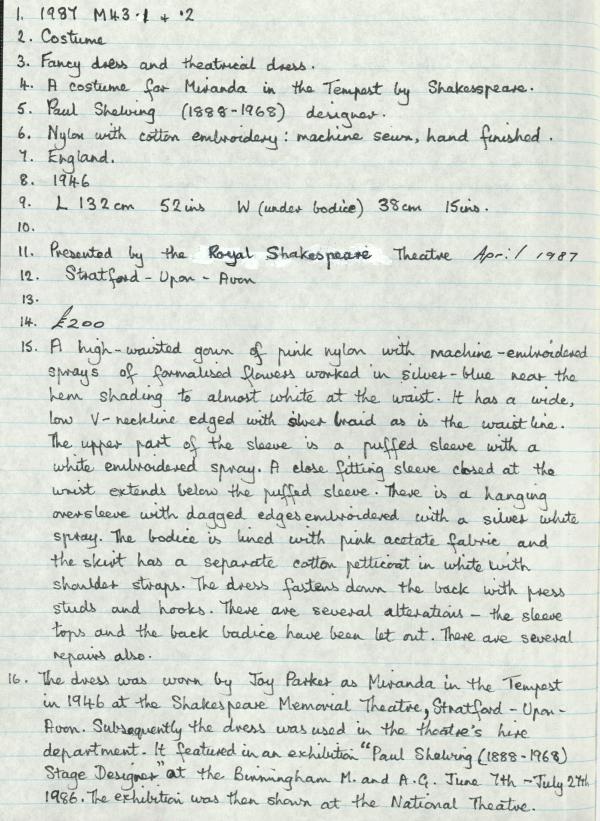 1. 1987 M43.1 + .2
2. Costume
3. Fancy dress and theatrical dress.
4. A costume for Miranda in the Tempest by Shakesspeare.
5. Paul Shelving (1888-1968) designer.
6. Nylon with cotton embroidery: machine sewn, hand finished.
7. England.
8. 1946
9. L 132cm 52ins W (under bodice) 38cm 15ins.
10.
11. Presented by the Royal Shakespeare Theatre April 1987
12. Stratford-Upon-Avon
13.
14. £200
15. A high-waisted gown of pink nylon with machine-embroidered
sprays of formalised flowers worked in silver-blue near the
hem shading to almost white at the waist. It has a wide,
low V-neckline edged with silver braid as is the waist line.
The upper part of the sleeve is a puffed sleeve with a
white embroidered spray. A close fitting sleeve closed at the
wrist extends below the puffed sleeve. There is a hanging
oversleeve with dagged edges embroidered with a silver white
spray. The bodice is lined with pink acetate fabric and
the skirt has a separate cotton petticoat in white with
shoulder straps. The dress fastens down the back with press
studs and hooks. There are several alterations - the sleeve
tops and the back badice have been let out. There are several
repairs also.
16. The dress was worn by Joy Parker as Miranda in the Tempest
in 1946 at the Shakespeare Memorial Theatre, Stratford-Upon-
Avon. Subsequently the dress was used in the theatre's hire
department. It featured in an exhibition "Paul Shelving (1888-1968)
Stage Designer" at the Birmingham M. and A.G. June 7th - July 27th
1986. The exhibition was then shown at the National Theatre.